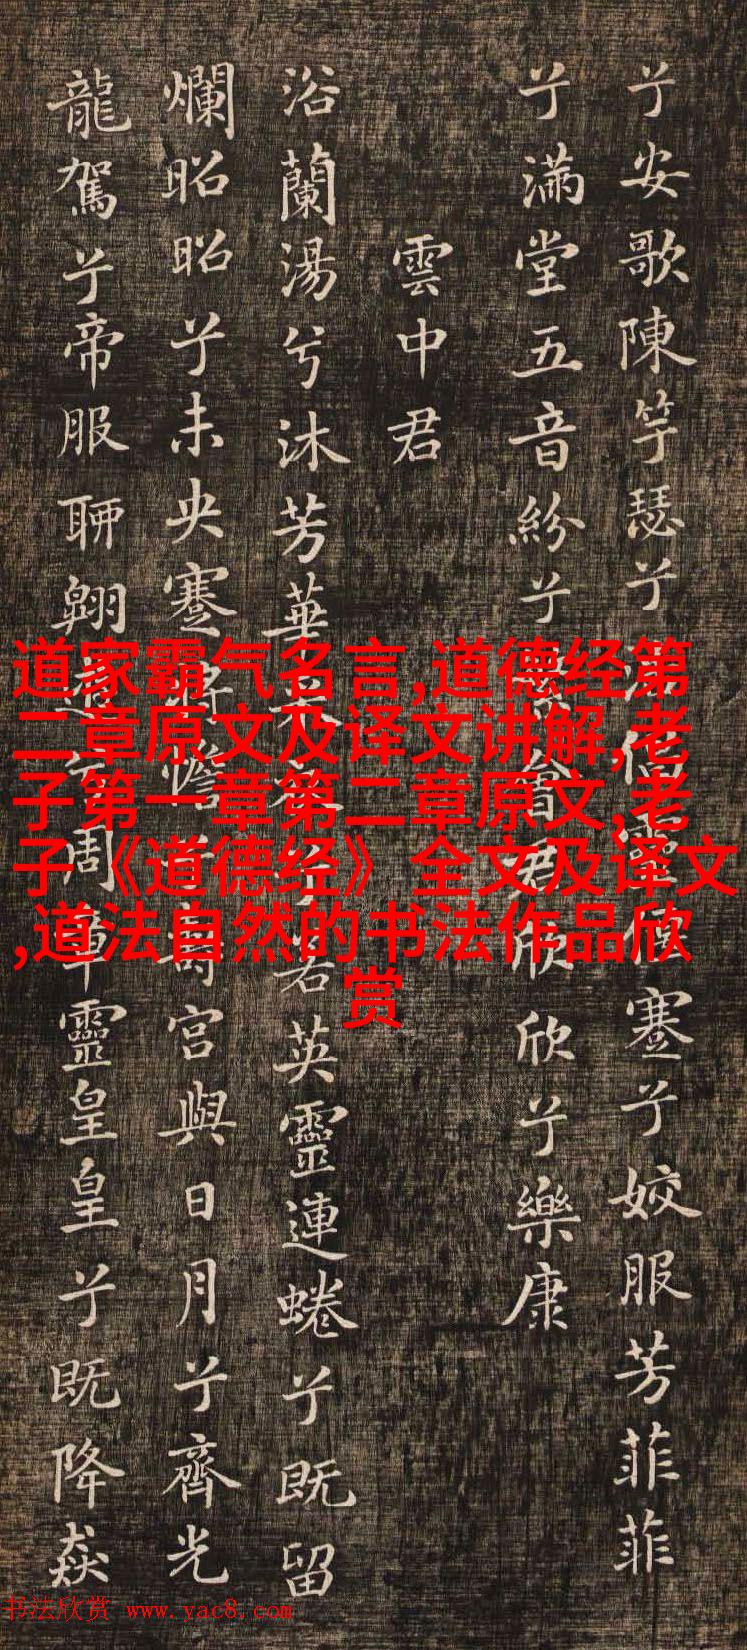 兮安歌陳竽瑟兮倡靈偃蹇兮姣服芳菲菲
兮滿堂五音紛兮繁會君欣欣兮樂康
雲中君
浴蘭湯兮沐芳華衣兮若英靈連蜷兮既留
爛昭昭兮未央蹇將憺兮壽宮與日月兮齊光
龍駕兮帝服聊翱遊兮周章靈皇皇兮既降猋
道家霸气名言,道德经第
二章原文及译文讲解,老
子第一章第二章原文,老
子《道德经》全文及译文
,道法自然的书法作品欣
赏
书法欣赏 www.yac8.com